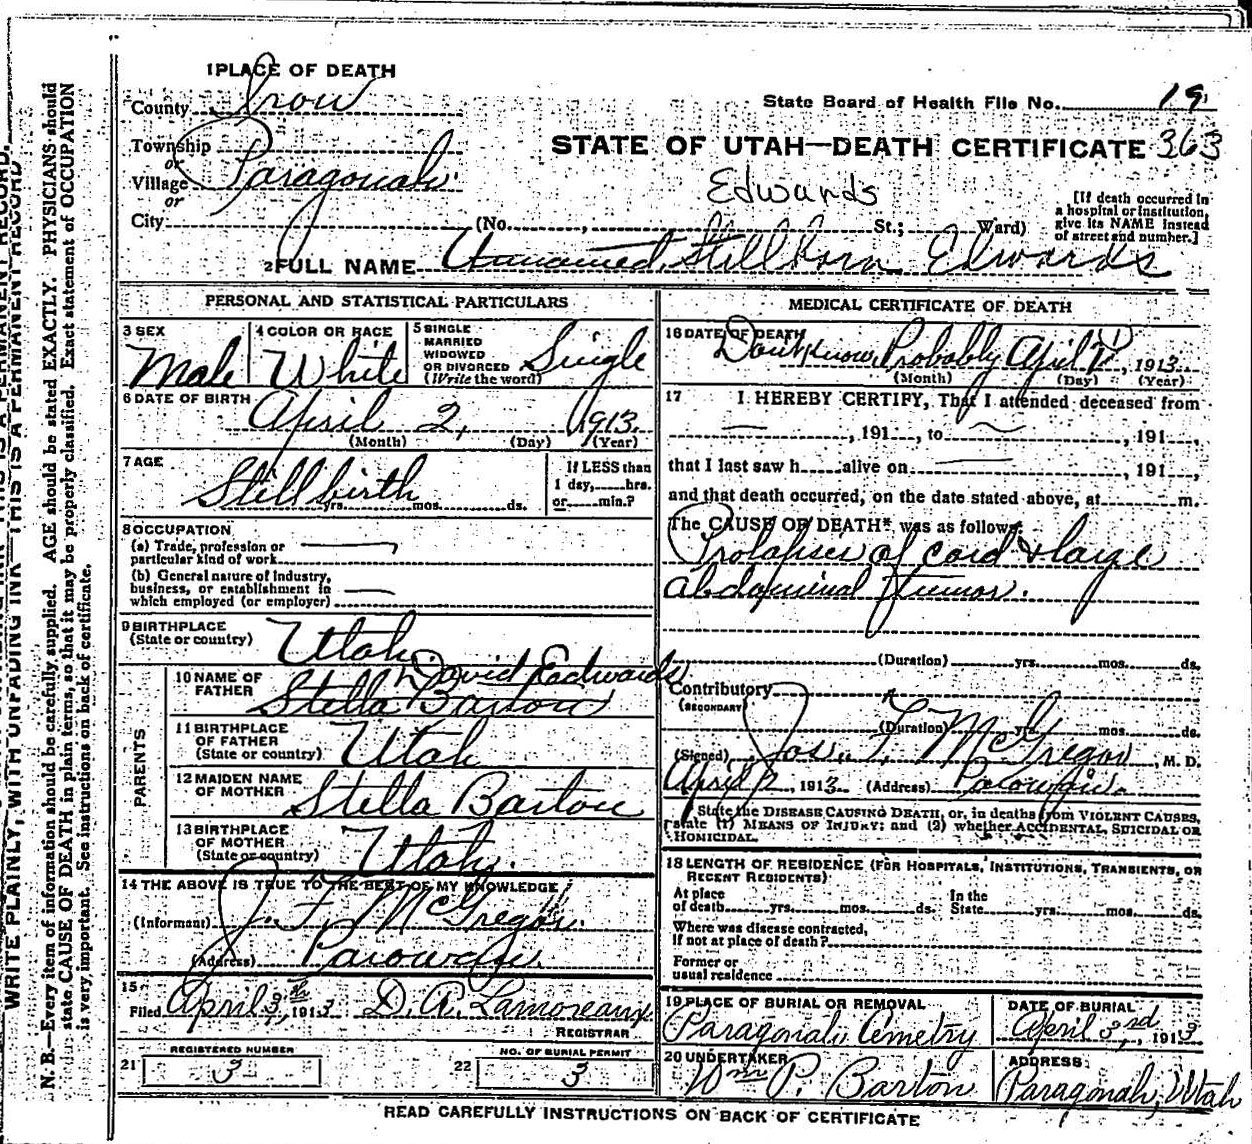 1 PLACE OF DEATH
County Iron
State Board of Health File No. 19
Township
or
Village Paragonah
or
City
STATE OF UTAH—DEATH CERTIFICATE 363
Edwards
(No. , St.; Ward)
[If death occurred in
a hospital or institution,
give its NAME instead
of street and number.]
2 FULL NAME Unnamed, Stillborn Edwards
PERSONAL AND STATISTICAL PARTICULARS
3 SEX
Male
4 COLOR OR RACE
White
5 SINGLE
MARRIED
WIDOWED
OR DIVORCED
(Write the word)
Single
6 DATE OF BIRTH
April 2, 1913
(Month) (Day) (Year)
7 AGE
Stillbirth
yrs. mos. ds.
If LESS than
1 day, hrs.
or min.?
8 OCCUPATION
(a) Trade, profession or
particular kind of work
(b) General nature of industry,
business, or establishment in
which employed (or employer)
9 BIRTHPLACE
(State or country)
Utah
PARENTS
10 NAME OF
FATHER
David Eadwards
Stella Barton
11 BIRTHPLACE
OF FATHER
(State or country)
Utah
12 MAIDEN NAME
OF MOTHER
Stella Barton
13 BIRTHPLACE
OF MOTHER
(State or country)
Utah.
14 THE ABOVE IS TRUE TO THE BEST OF MY KNOWLEDGE
(Informant) J. F. McGregor.
(Address) Parowan.
15
Filed April 3, th 1913 D. A. Lamoreaux
REGISTRAR
21 REGISTERED NUMBER
3
22 NO. OF BURIAL PERMIT
3
MEDICAL CERTIFICATE OF DEATH
16 DATE OF DEATH
Dont know, Probably April 1, 1913
(Month) (Day) (Year)
17 I HEREBY CERTIFY, That I attended deceased from
, 191 , to , 191 ,
that I last saw h alive on , 191 ,
and that death occurred, on the date stated above, at m.
The CAUSE OF DEATH* was as follows:
Prolapses of cord & large
abdominal tumor.
(Duration) yrs. mos. ds.
Contributory
(SECONDARY)
(Duration) yrs. mos. ds.
(Signed) Jos. F. McGregor, M. D.
April 2, 1913 (Address) Parowan.
State the DISEASE CAUSING DEATH, or, in deaths from VIOLENT CAUSES,
state (1) MEANS OF INJURY; and (2) whether ACCIDENTAL, SUICIDAL OR
HOMICIDAL.
18 LENGTH OF RESIDENCE (FOR HOSPITALS, INSTITUTIONS, TRANSIENTS, OR
RECENT RESIDENTS)
At place
of death yrs. mos. ds.
In the
State yrs. mos. ds.
Where was disease contracted,
if not at place of death?
Former or
usual residence
19 PLACE OF BURIAL OR REMOVAL
Paragonah Cemetry
DATE OF BURIAL
April 3, rd 1913
20 UNDERTAKER
Wm P. Barton
ADDRESS
Paragonah, Utah
READ CAREFULLY INSTRUCTIONS ON BACK OF CERTIFICATE
WRITE PLAINLY, WITH UNFADING INK—THIS IS A PERMANENT RECORD
N. B.—Every item of information should be carefully supplied. AGE should be stated EXACTLY. PHYSICIANS should
state CAUSE OF DEATH in plain terms, so that it may be properly classified. Exact statement of OCCUPATION
is very important. See instructions on back of certificate.